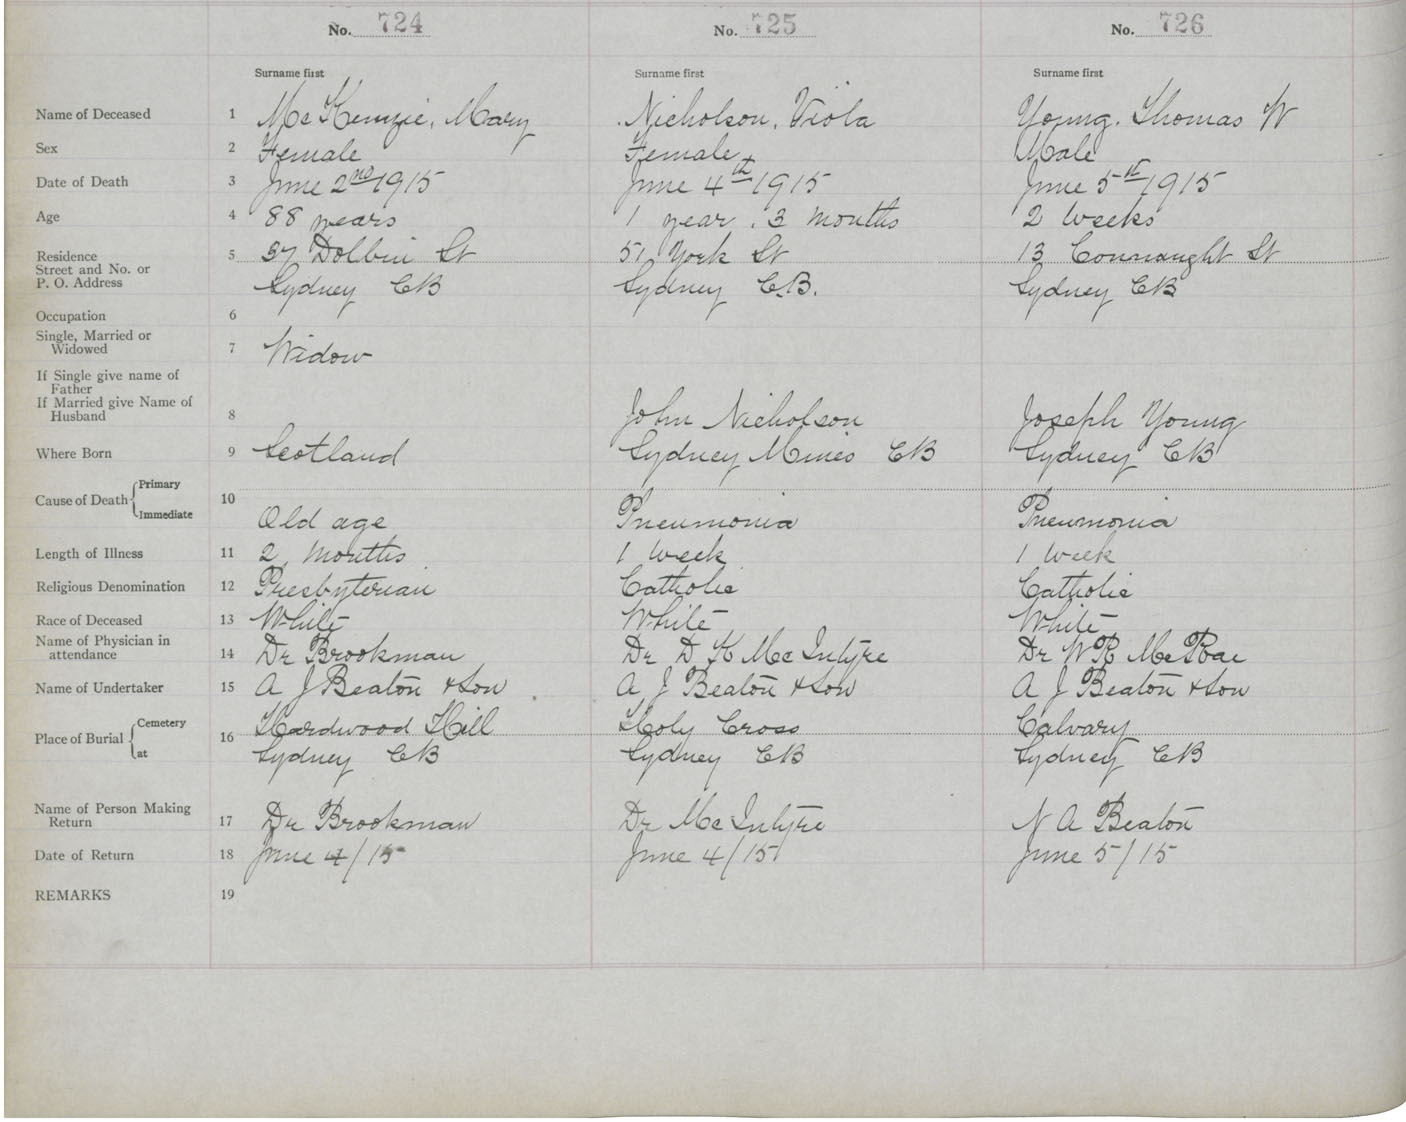 No. 724 No. 725 No. 726
Surname first Surname first Surname first
Name of Deceased 1 McKenzie, Mary Nicholson, Viola Young. Thomas W
Sex 2 Female Female Male
Date of Death 3 June 2nd 1915 June 4th 1915 June 5th 1915
Age 4 88 years 1 year, 3 months 2 weeks
Residence
Street and No. or 5 37 Dolbin St 51 York St 13 Connaught St
P. O. Address Sydney CB Sydney C.B. Sydney CB
Occupation 6
Single, Married or
Widowed 7 Widow
If Single give name of
Father
If Married give Name of
Husband 8 John Nicholson Joseph Young
Where Born 9 Scotland Sydney Mines CB Sydney CB
Cause of Death Primary 10
Immediate Old age Pneumonia Pneumonia
Length of Illness 11 2 months 1 week 1 week
Religious Denomination 12 Presbyterian Catholic Catholic
Race of Deceased 13 White White White
Name of Physician in
attendance 14 Dr Brookman Dr D K McIntyre Dr W R McRae
Name of Undertaker 15 A J Beaton & Son A J Beaton & Son A J Beaton & Son
Place of Burial Cemetery 16 Hardwood Hill Holy Cross Calvary
at Sydney CB Sydney CB Sydney CB
Name of Person Making
Return 17 Dr Brookman Dr McIntyre N A Beaton
Date of Return 18 June 4/15 June 4/15 June 5/15
REMARKS 19